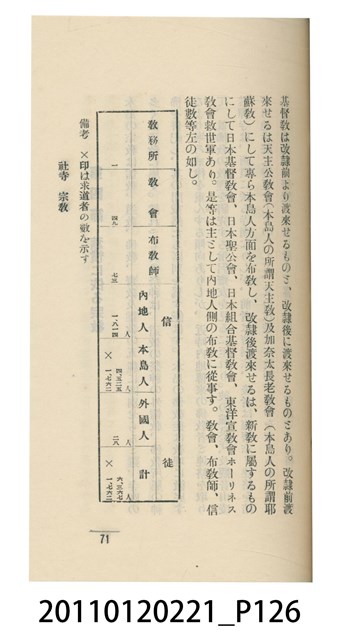 基督敎は改隷前より渡來せるものと、改隷後に渡來せるものとあり。改隷前渡
來せるは天主公敎會(本島人の所謂天主敎)及加奈太長老敎會(本島人の所謂耶
蘇敎)にして專ら本島人方面を布敎し、改隷後渡來せるは、新敎に屬するもの
にして日本基督敎會、日本聖公會、日本組合基督敎會、東洋宣敎會ホーリネス
敎會救世軍あり。是等は主として内地人側の布敎に從事す。敎會、布敎師、信
徒數等左の如し。
敎務所 敎會 布敎師 信徒
内地人 本島人 外國人 計
一 四九 七三 一、八一四人 四、五二五人 ×一、七六二 二八人 六、三六七人 ×一、七六二
備考 ×印は求道者の數を示す
社寺 宗敎
71
20110120221_P126